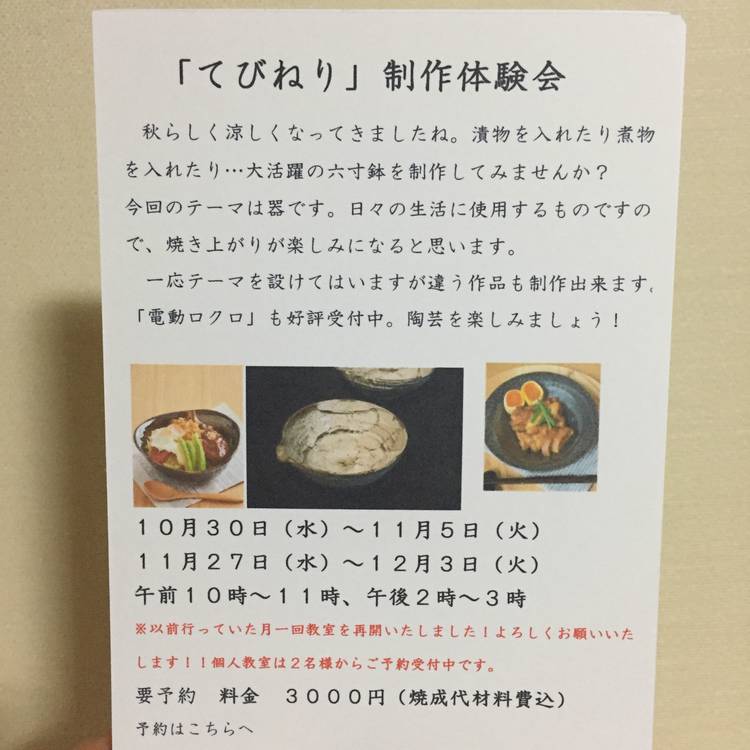 「てびねり」制作体験会
秋らしく涼しくなってきましたね。漬物を入れたり煮物
を入れたり…大活躍の六寸鉢を制作してみませんか？
今回のテーマは器です。日々の生活に使用するものですの
で、焼き上がりが楽しみになると思います。
一応テーマを設けてはいますが違う作品も制作出来ます。
「電動ロクロ」も好評受付中。陶芸を楽しみましょう！
１０月３０日（水）～１１月５日（火）
１１月２７日（水）～１２月３日（火）
午前１０時～１１時、午後２時～３時
※以前行っていた月一回教室を再開いたしました！よろしくお願いいた
します！！個人教室は２名様からご予約受付中です。
要予約　料金　３０００円（焼成代材料費込）
予約はこちらへ